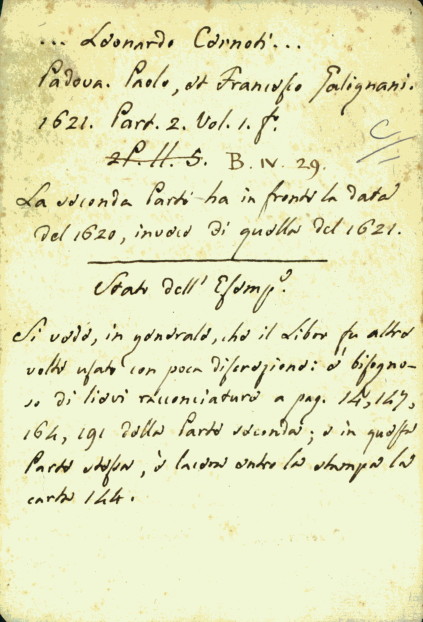 ... Leonardo Cernoti ...
Padova. Paolo, et Francesco Galignani.
1621. Part. 2. Vol. 1. fo.
2P. ll. 5. B. IV. 29.
La seconda Parte ha in fronte la data
del 1620, invece di quella del 1621.
Stato dell' Esempe.
Si vede, in generale, che il Libro fu altre
volte usato con poca discrezione: è bisogno-
so di lievi racconciature a pag. 14, 147,
164, 191 della Parte seconda; e in questa
Parte stessa, è lacera entro la stampa la
carta 144.